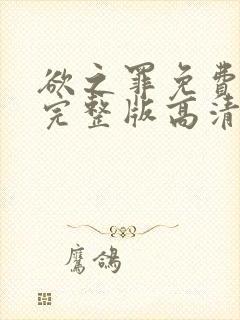 欲之罪免费
完整版高清
鹰鸽